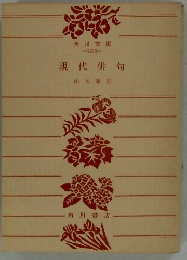 角川文庫
現代俳句
山本健吉
角川書店